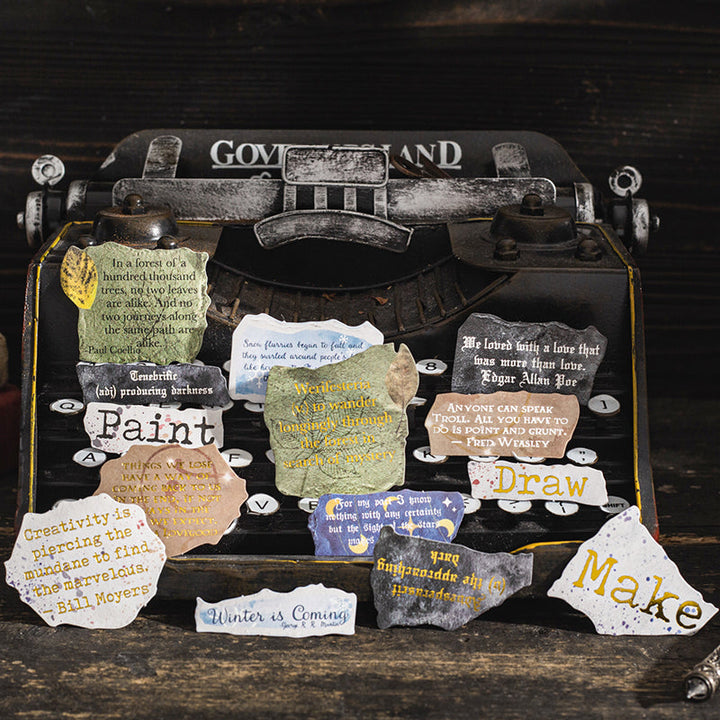 GOVE LAND
In a forest of a
hundred thousand
trees, no two leaves
are alike. And no
two journeys along
the same path are
alike.
-Paul Coelho
Snow flurries began to fall and
they swirled around people's
like
Tenebrific
(adj) producing darkness
Paint
Werilesterre
(v) to wander
longingly through
the forest in
search of mystery
We loved with a love that
was more than love.
Edgar Allan Poe
8
Q
I
Anyone can speak
Troll. All you have to
do is point and grunt.
— Fred Weasley
A
Draw
Things we lose
have a way of
coming back to us
in the end, if not
expect
V
SHIFT
For my part I know
nothing with any certainty
but the sight of the stars
makes
Creativity is
piercing the
mundane to find
the marvelous.
— Bill Moyers
(n) the approaching
Dark
Make
Winter is Coming
George R. R. Martin